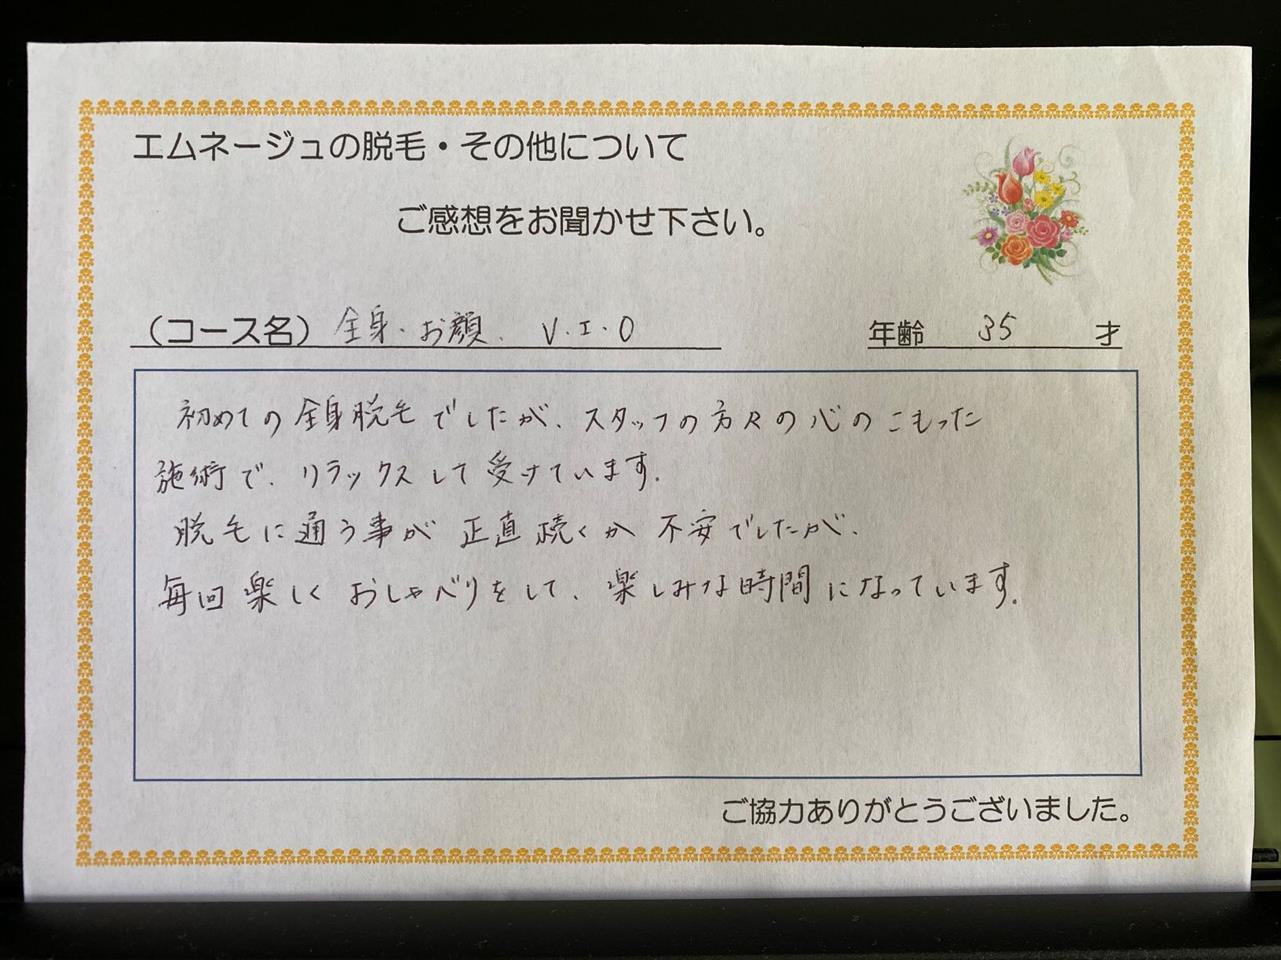 エムネージュの脱毛・その他について
ご感想をお聞かせ下さい。
（コース名）全身・お顔、V・I・O
年齢 35 才
初めての全身脱毛でしたが、スタッフの方々の心のこもった
施術で、リラックスして受けています。
脱毛に通う事が正直続くか不安でしたが、
毎回楽しくおしゃべりをして、楽しみな時間になっています。
ご協力ありがとうございました。